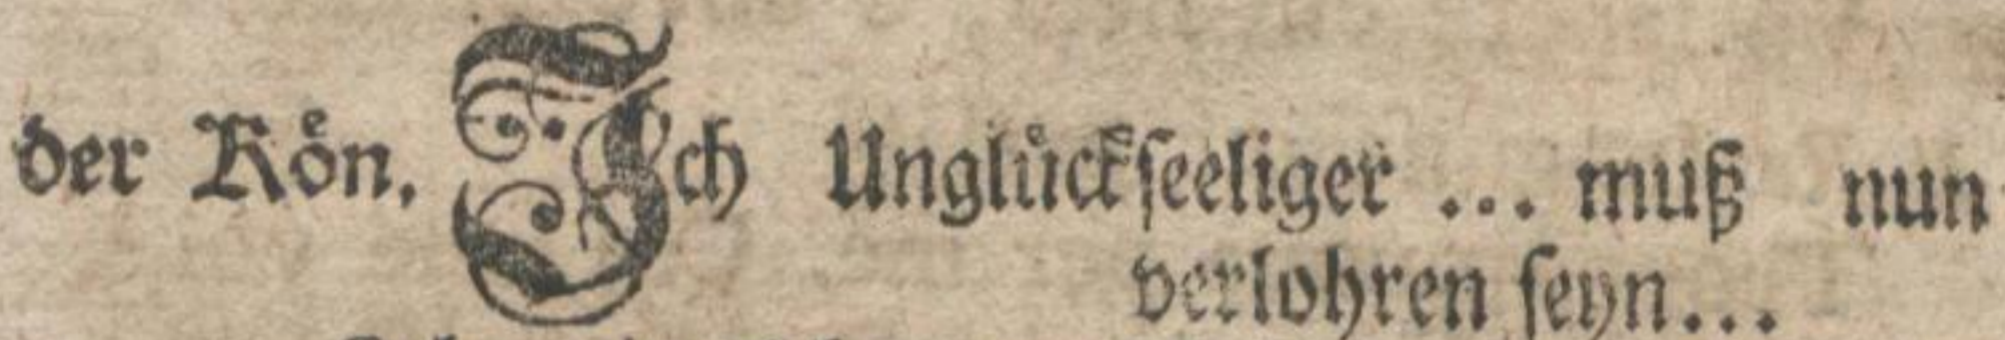 der Kön. Ich Unglückſeeliger ... muß nun
verlohren ſeyn...